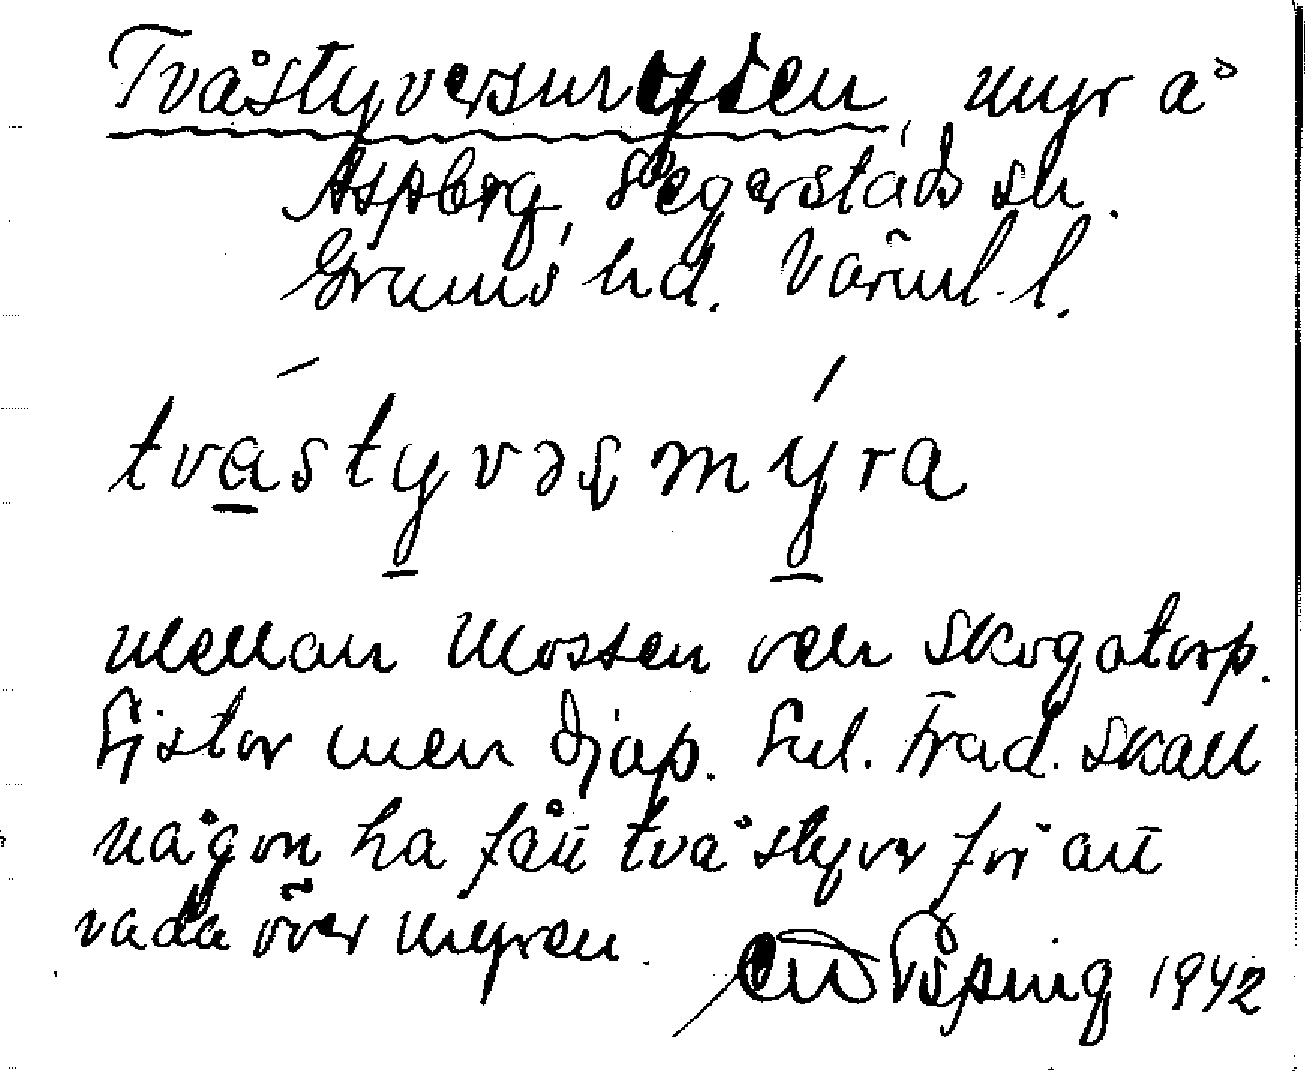 Tvåstyversmyren, myr å
Aspberg, Segerstads sn.
Grums hd. Värml. l.
tvástyvəʂmýra
mellan Mossen och Skogatorp.
Ej stor men djup. Enl. Trad. skall
någon ha fått två styver för att
vada över myren.
Töping 1942